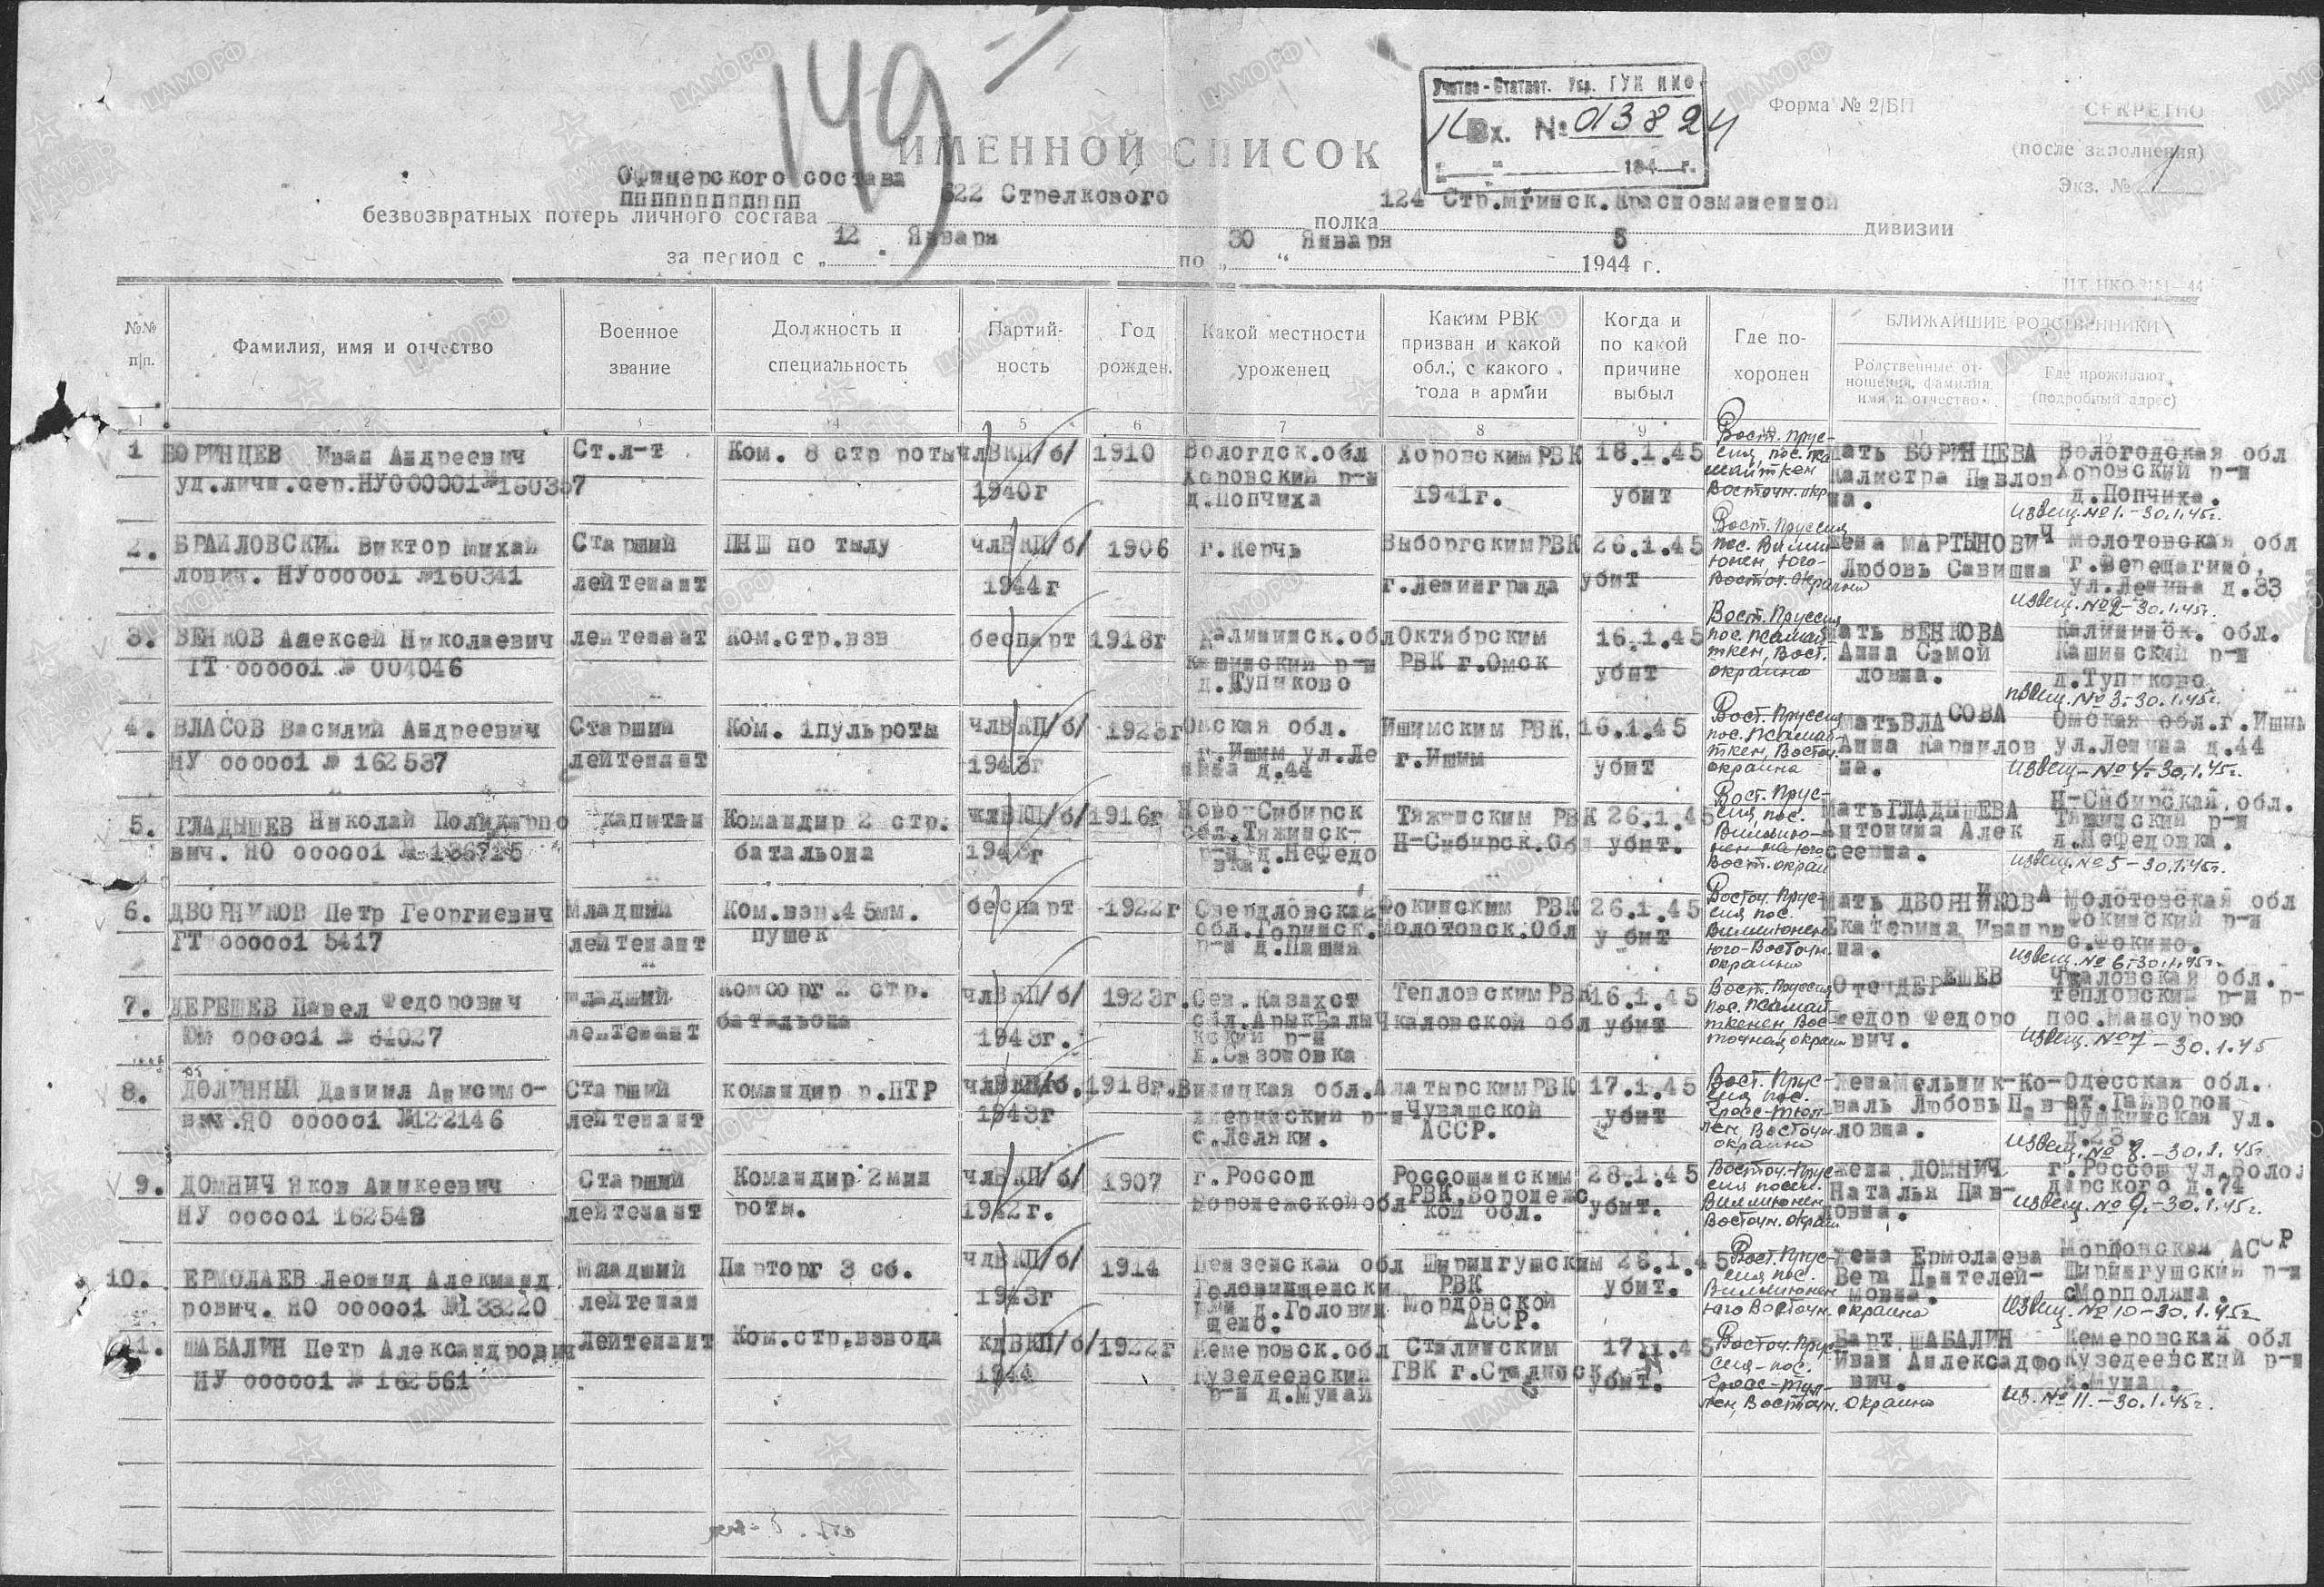 149
Учетно-Статист. Упр. ГУК НКО
Вх. № 013824
194 г.
Форма № 2/БП
СЕКРЕТНО
(после заполнения)
Экз. № 1
ИМЕННОЙ СПИСОК
Офицерского состава
безвозвратных потерь личного состава 622 Стрелкового полка 124 Стр.мгинск.Краснознаменной дивизии
за период с „12" Января по „30" Января 1944 г.
5
№№ п/п.
Фамилия, имя и отчество
Военное звание
Должность и специальность
Партий- ность
Год рожден.
Какой местности уроженец
Каким РВК призван и какой обл.; с какого года в армии
Когда и по какой причине выбыл
Где по- хоронен
БЛИЖАЙШИЕ РОДСТВЕННИКИ
Родственные от- ношения, фамилия, имя и отчество
Где проживают (подробный адрес)
1 2 3 4 5 6 7 8 9
1 БОРИНЦЕВ Иван Андреевич Ст.л-т Ком. 8 стр роты члВКП/б/ 1910 Вологдск.обл Хоровским РВК 18.1.45 Вост. Прус- мать БОРИНЦЕВА Вологодская обл
уд.личн.сер.НУ000001№160357 1940г Харовский р-н 1941г. убит Калистра Павлов Хоровский р-н
д.Попчиха Восточн. окр на. д.Попчиха.
извещ. №1.-30.1.45г.
2. БРАИЛОВСКИЙ Виктор Михай Старший ПНШ по тылу члВКП/б/ 1906 г.Керчь Выборгским РВК 26.1.45 Вост. Пруссия жена МАРТЫНОВИЧ Молотовская обл
лович. НУ000001 №160341 лейтенант 1944г г.Ленинграда убит Юго- Любовь Савишна г.Верещагино,
Восточ. окраина ул.Ленина д.33
извещ. №2-30.1.45г.
3. ВЕНКОВ Алексей Николаевич лейтенант Ком.стр.взв беспарт 1918г Калининск.обл Октябрским 16.1.45 Вост. Пруссия мать ВЕНКОВА Калининск. обл.
ГТ 000001 № 004046 Кашинский р-н РВК г.Омск убит Вост. Анна Самой Кашинский р-н
д.Тупиково окраина ловна. д.Тупиково
извещ. №3-30.1.45г.
4. ВЛАСОВ Василий Андреевич Старший Ком. 1пульроты члВКП/б/ 1923г Омская обл. Ишимским РВК, 16.1.45 Вост. Пруссия мать ВЛАСОВА Омская обл.г.Ишим
НУ 000001 № 162537 лейтенант 1943г г.Ишим ул.Ле г.Ишим убит Восточ. Анна Карпилов ул.Ленина д.44
нина д.44 окраина на. извещ-№4-30.1.45г.
5. ГЛАДЫШЕВ Николай Поликарпо капитан Командир 2 стр. члВКП/б/ 1916г Ново-Сибирск Тяжинским РВК 26.1.45 Вост. Прус- мать ГЛАДЫШЕВА Н-Сибирская обл.
вич. ЯО 000001 № батальона 1943г обл.Тяжинск- Н-Сибирск.Обл убит. сия, пос. Антонина Алек Тяжинский р-н
р-н д.Нефедо Вост. окраи сеевна. д.Нефедовка.
вка. извещ. №5-30.1.45г.
6. ДВОРНИКОВ Петр Георгиевич младший Ком.взв.45мм. беспарт 1922г Свердловская Фокинским РВК 26.1.45 Восточ. Прус- мать ДВОРНИКОВА Молотовская обл
ГТ 000001 5417 лейтенант пушек обл.Горинск. Молотовск.Обл убит сия пос. Екатерина Ивано Фокинский р-н
р-н д.Пашня Юго-Восточн. на. с.Фокино.
окраина извещ. №6-30.1.45г.
7. ДЕРЕШЕВ Павел Федорович младший комсорг 2 стр. члВКП/б/ 1923г. Сев.Казахст Тепловским РВК 16.1.45 Вост. Пруссия Отец ДЕРЕШЕВ Чкаловская обл.
ЮМ 000001 № 64027 лейтенант батальона 1943г. обл.АрыкБалы Чкаловской обл убит Федор Федоро тепловский р-н
кский р-н точная окраин вич. пос.Мансурово
д.Сазоновка извещ. №7-30.1.45
8. ДОЛИННЫЙ Даниил Анисимо- Старший командир р.ПТР члВКП/б. 1918г. Виницкая обл. Алатырским РВК 17.1.45 Вост. Прус- жена Мельник-Ко- Одесская обл.
вич.ЯО 000001 №122146 лейтенант 1943г Чувашской убит сия пос. валь Любовь Пав ст.Гайворон
с.Леляки. АССР. Восточн. ловна. Пушкинская ул.
окраина д.23.
извещ. №8.-30.1.45г
9. ДОМНИЧ Яков Аникеевич Старший Командир 2мин члВКП/б/ 1907 г.Россош Россошанским 28.1.45 Восточ. Прус- жена ДОМНИЧ г.Россош ул.Воло
НУ 000001 162548 лейтенант роты. 1942г. Воронежской обл РВК Воронежс убит. Наталья Пав- дарского д.74
кой обл. Восточн. окраин ловна. извещ. №9.-30.1.45г.
10. ЕРМОЛАЕВ Леонид Александ Младший Парторг 3 сб. члВКП/б/ 1914 Пензенская обл Ширингушским 26.1.45 Вост. Прус- жена Ермолаева Мордовская АССР
рович. ЯО 000001 №133220 лейтенан 1943г Головинщенски РВК убит. сия пос. Вера Пантелей- Ширингушский р-н
д.Головин Мордовской мовна.
щено. АССР. Юго Восточн. окраина извещ. №10-30.1.45г
11. ШАБАЛИН Петр Александрович Лейтенант Ком.стр.взвода кдВКП/б/ 1922г Кемеровск.обл Сталинским 17.1.45 Восточ. Прус- Барт ШАБАЛИН Кемеровская обл
НУ 000001 № 162561 1944 Кузедеевский ГВК г.Сталинск убит. сия-пос. Иван Аллексадро Кузедеевский р-н
р-н д.Мунай Восточн. окраина вич. д.Мунай.
из. №11.-30.1.45г.